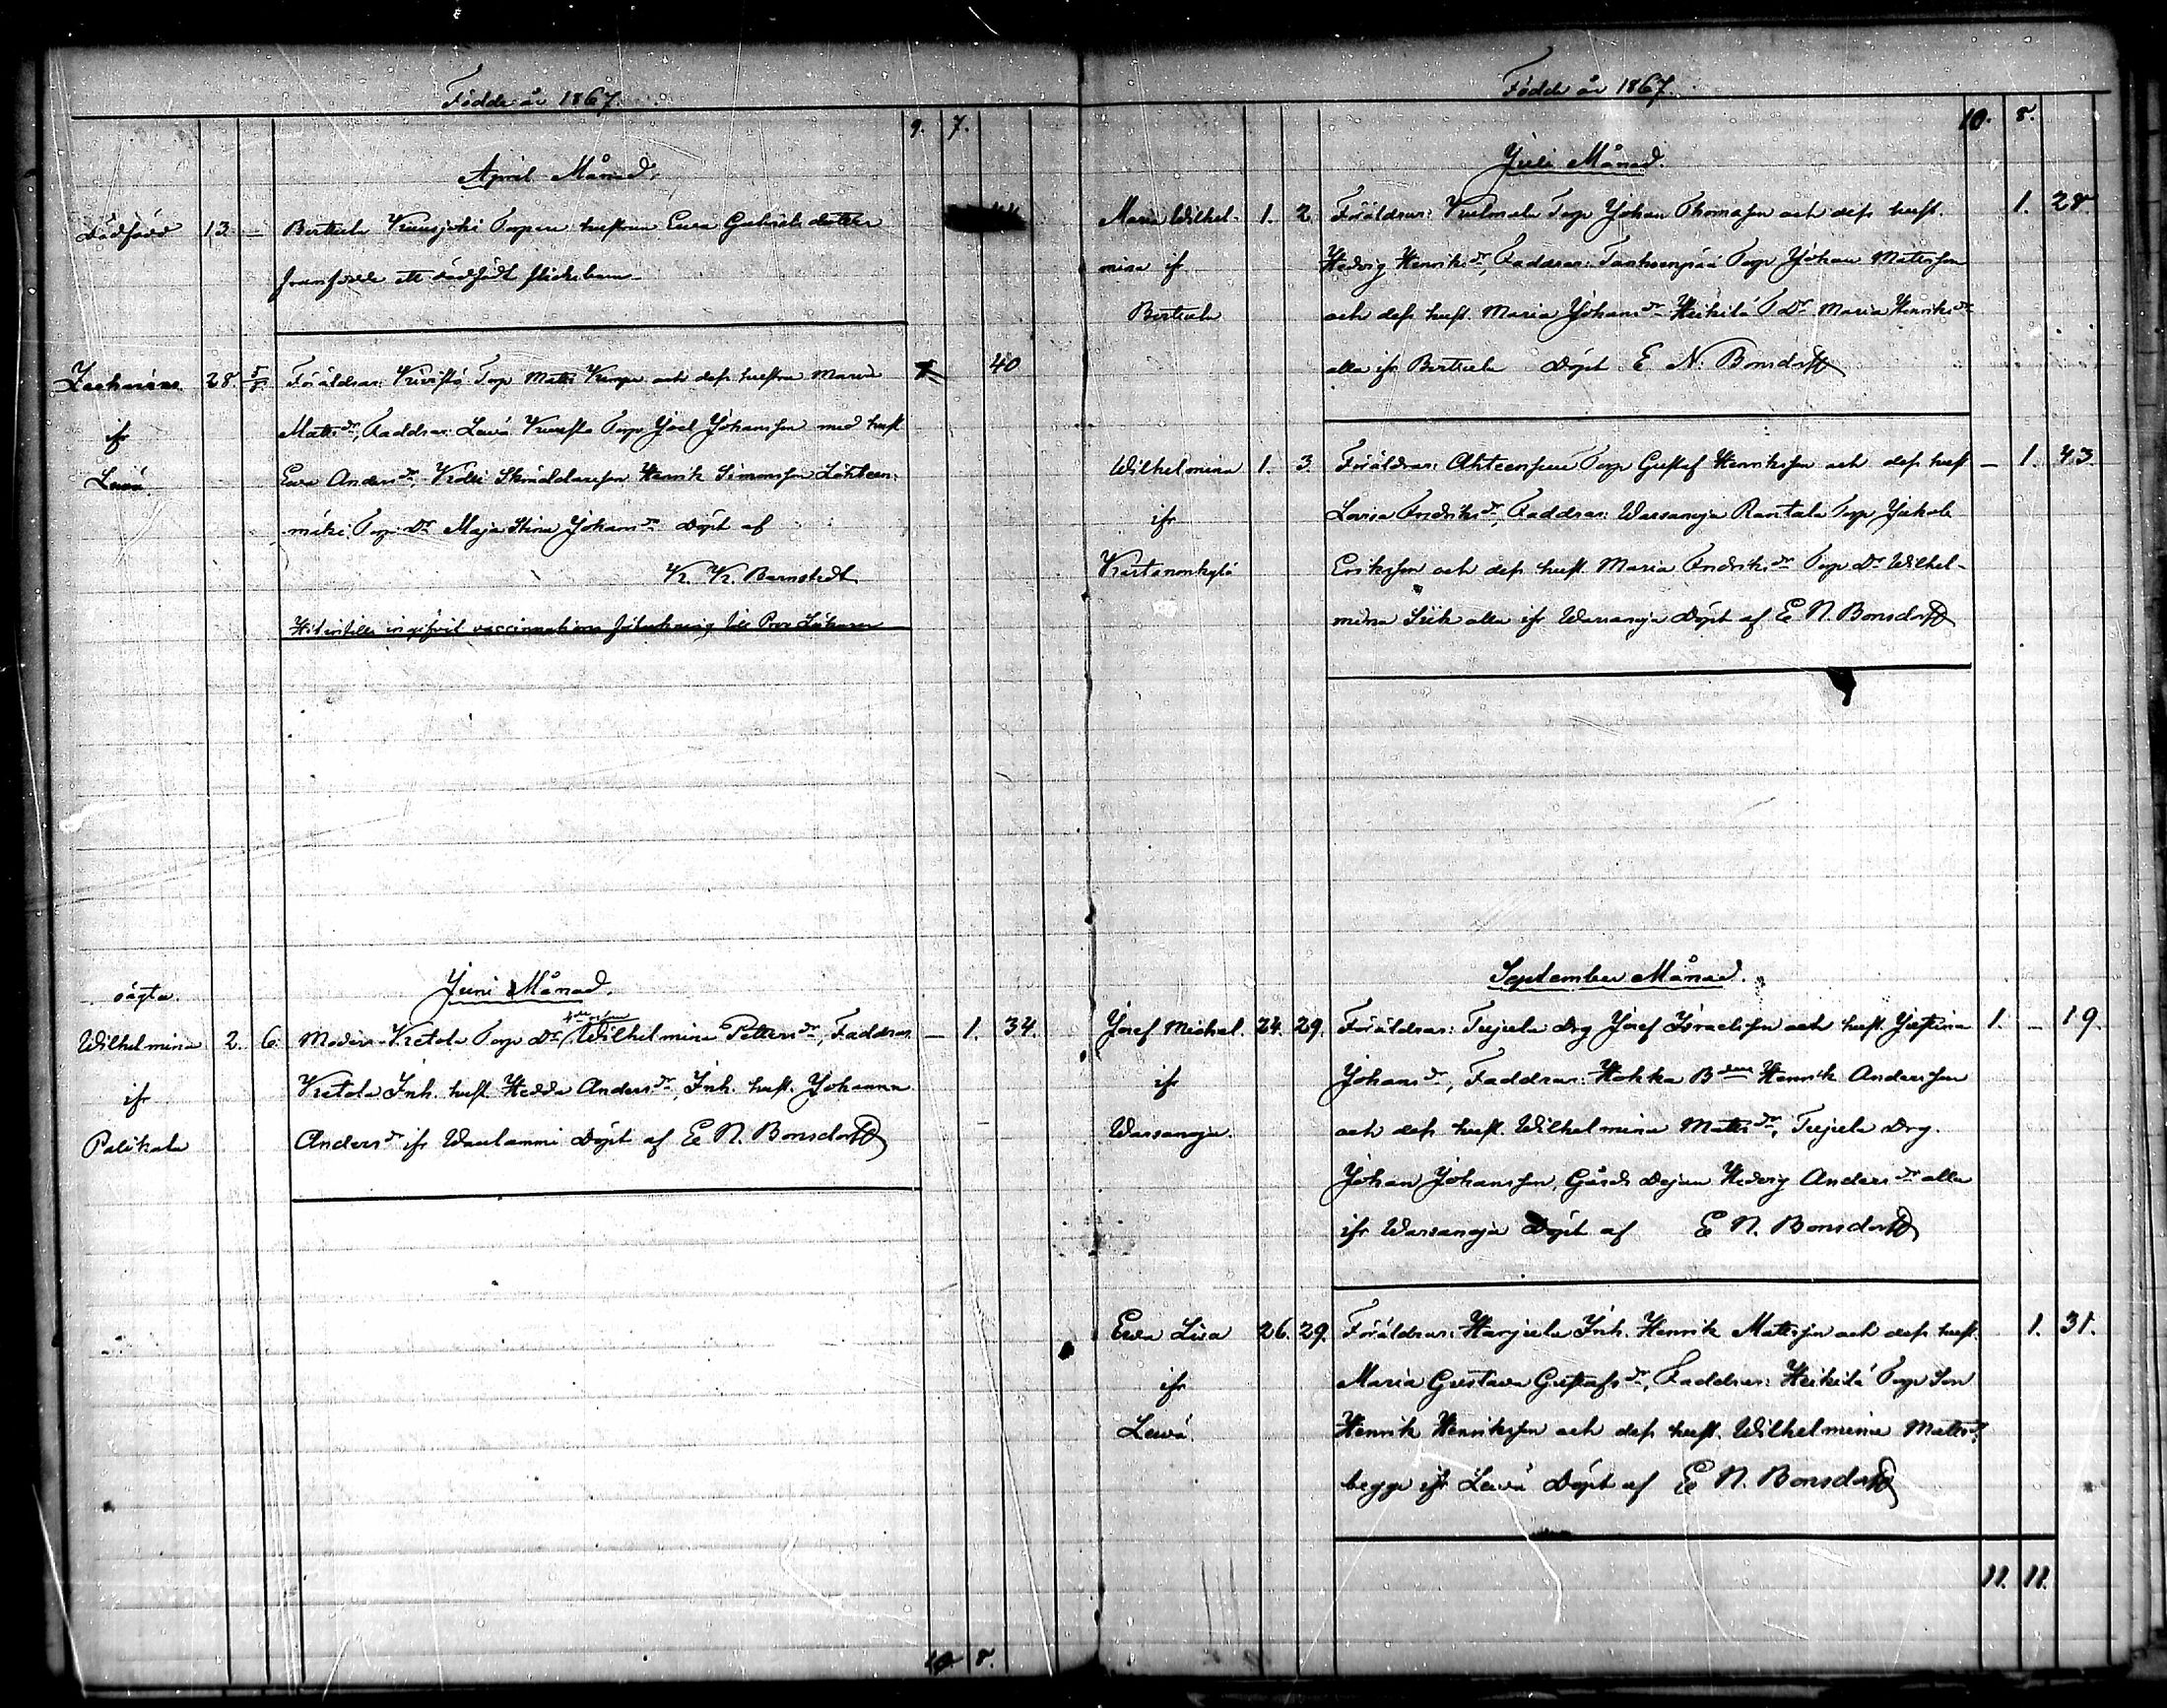 Födde år 1867.
9. 7.
April Månad.
Dödfödd 13 — Bertula Kuusjoki Torpare hustrun Ewa Gabriels dotter
framfödde ett dödfödt flickebarn
Zacharias 28. 5/5 Föräldrar: Kivistö Torp Matts och dess hustru Maria 40
ifr Matts dr, Faddrar: Lewä Kivistö Torp Joel Johansson med hust
Lewä. Ewa Anders dr, Kölli Skräddaresson Henrik Simonsson Lähteen-
mäki Torp Dr Maja Stina Johans dr Döpt af
K. K. Barnstedt
vaccinations
oägta. Juni Månad.
Wilhelmina 2. 6. Moder: Ketola Torp Dr Wilhelmina Petters dr, Faddrar — 1. 34.
ifr Ketola Inh. hust. Hedda Anders dr, Inh. hust. Johanna
Palikala Anders dr ifr Waulammi Döpt af E N. Bonsdorff
10 8.
Födde år 1867.
10. 8.
Juli Månad.
Maria Wilhel- 1. 2 Föräldrar: Torp Johan Thomasson och dess hust. 1. 28.
mina ifr Hedvig Henriks dr, Faddrar: Torp Johan Mattsson
Bertula och dess hust. Maria Johans dr Heikilä T Dr Maria Henriks dr
alla ifr Bertula Döpt E N. Bonsdorff
Wilhelmina 1. 3. Föräldrar: Torp Gustaf Henriksson och dess hust — 1. 43.
ifr Lovisa Fredriks dr, Faddrar: Warsanoja Rantala Torp Jakob
Kartanonkylä Eriksson och dess hust. Maria Fredriks dr Torp Dr Wilhel-
mina alla ifr Warsanoja Döpt af E N. Bonsdorff
September Månad.
Josef Michel. 24. 29. Föräldrar: Tujula Drg Josef Israelsson och hust. Justina 1. — 19.
ifr Johans dr, Faddrar: Hokka Bden Henrik Andersson
Warsanoja. och dess hust. Wilhelmina Matts dr, Tujula Drg.
Johan Johansson, Gårds Dejan Hedvig Anders dr alla
ifr Warsanoja Döpt af E N. Bonsdorff
Ewa Lisa 26. 29. Föräldrar: Harjula Inh. Henrik Mattsson och dess hust. 1. 31.
ifr Maria Gustava Gustafs dr, Faddrar: Heikilä Torp Son
Lewä. Henrik Henriksson och dess hust. Wilhelmina Matts dr,
begge ifr Lewä Döpt af E N. Bonsdorff
11. 11.